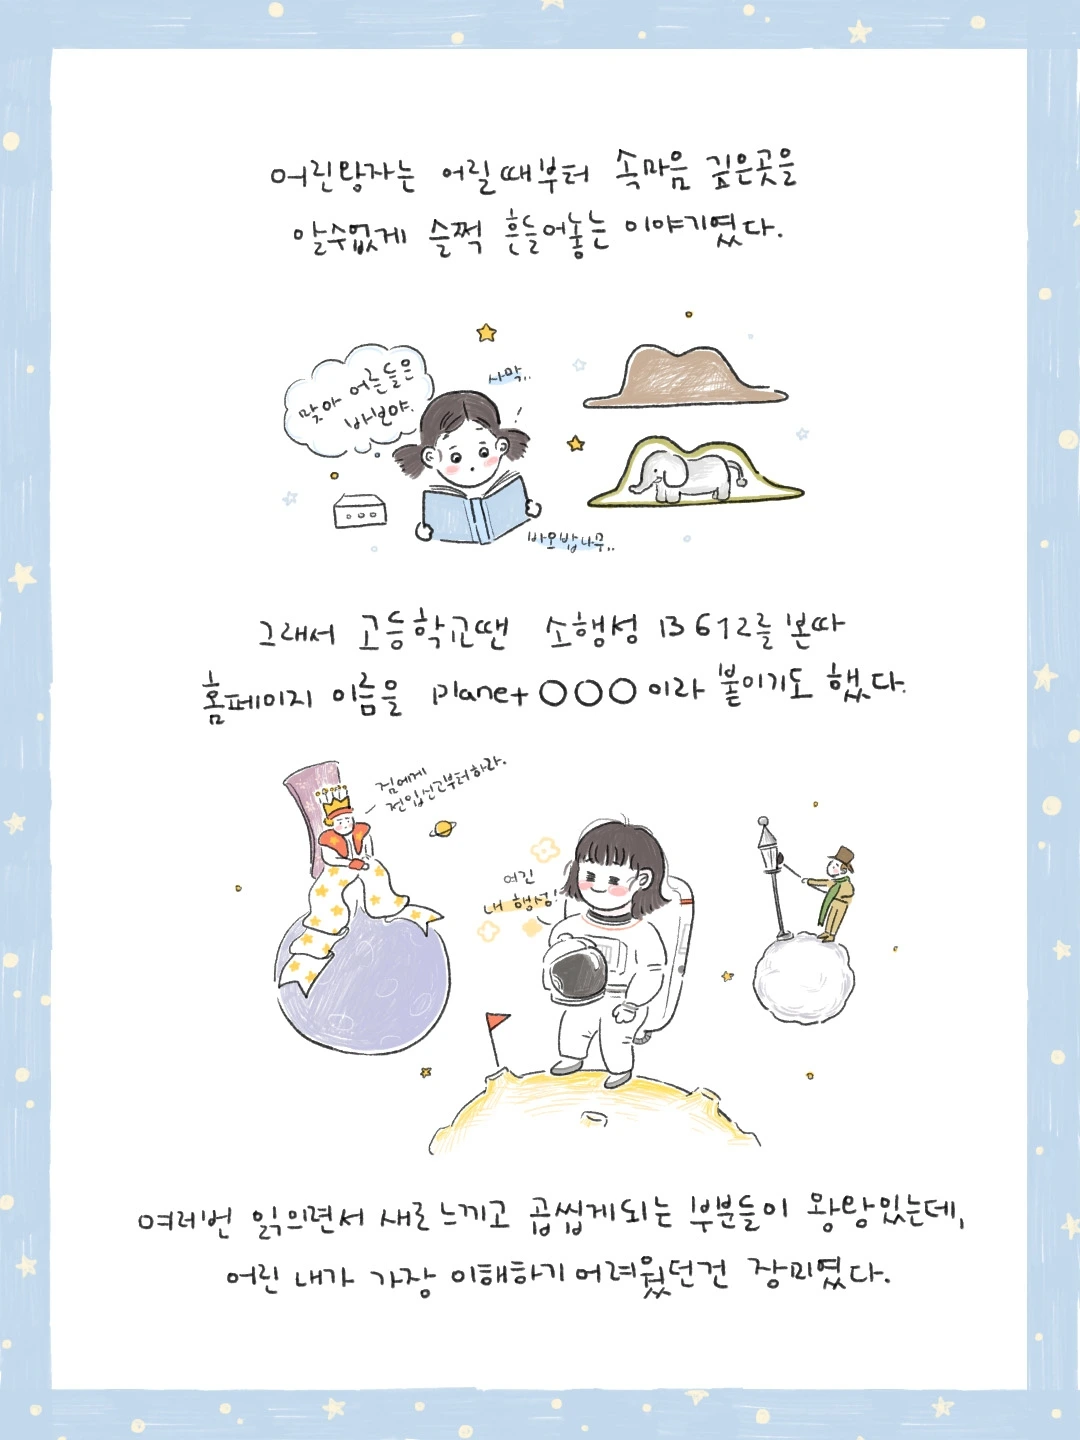 어린왕자는 어릴때부터 속마음 깊은곳을
알수없게 슬쩍 흔들어놓는 이야기였다.
맞아 어른들은
바보야.
사막..
바오밥나무..
그래서 고등학교땐 소행성 B612를 본따
홈페이지 이름을 planet ○○○이라 붙이기도 했다.
짐에게
전입신고부터하라.
여긴
내 행성!
여러번 읽으면서 새로 느끼고 곱씹게되는 부분들이 왕왕있는데,
어린 내가 가장 이해하기 어려웠던건 장미였다.